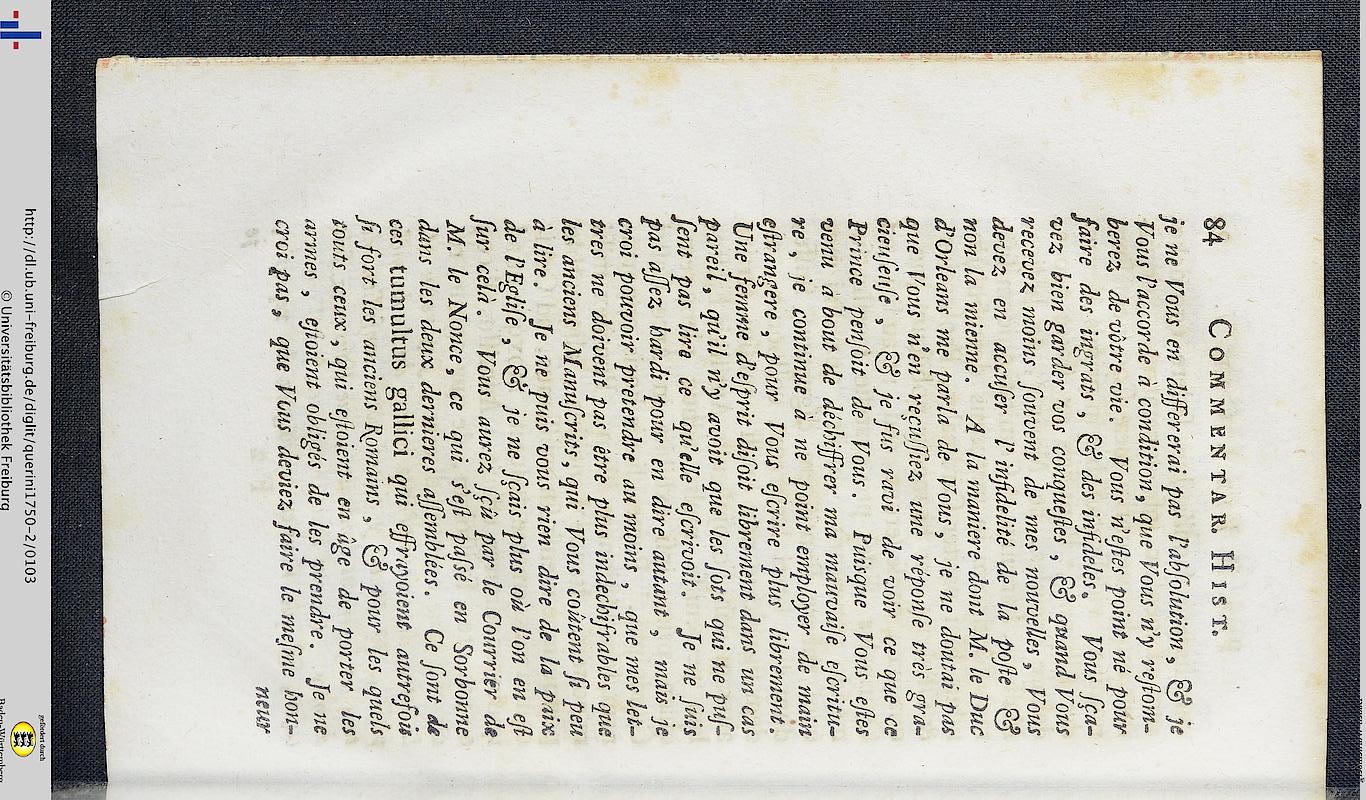 84 COMMENTAR. HIST.
je ne Vous en différerai pas l'abſolution, & je
Vous l'accorde à condition, que Vous n'y reſtom-
berez de vòtre vie. Vous n'eſtes point né pour
faire des ingrats, & des infideles. Vous ſça-
vez bien garder vos conqueſtes, & quand Vous
recevez moins ſouvent de mes nouvelles, Vous
devez en accuſer l'infidelité de la poſte &
non la mienne. A la maniere dont M. le Duc
d'Orleans me parla de Vous, je ne doutai pas
que Vous n'en reçuſſiez une réponſe très gra-
cieuſeuſe, & je fus ravi de voir ce que ce
Prince penſoit de Vous. Puisque Vous eſtes
venu a bout de déchiffrer ma mauvaiſe eſcritu-
re, je continue à ne point employer de main
eſtrangere, pour Vous eſcrire plus librement.
Une femme d'eſprit diſoit librement dans un cas
pareil, qu'il n'y avoit que les ſots qui ne puſ-
ſent pas lire ce qu'elle eſcrivoit. Je ne ſuis
pas aſſez hardi pour en dire autant, mais je
croi pouvoir pretendre au moins, que mes let-
tres ne doivent pas ètre plus indechifrables que
les anciens Manuſcrits, qui Vous coùtent ſi peu
à lire. Je ne puis vous rien dire de la paix
de l'Egliſe, & je ne ſçais plus où l'on en eſt
ſur celà. Vous aurez ſçû par le Courrier de
M. le Nonce, ce qui s'eſt paſsé en Sorbonne
dans les deux dernieres aſſemblées. Ce ſont de
ces tumultus gallici qui effrayoient autrefois
ſi fort les anciens Romains, & pour les quels
touts ceux, qui eſtoient en âge de porter les
armes, eſtoient obligés de les prendre. Je ne
croi pas, que Vous deviez faire le meſme hon-
neur
http://dl.ub.uni-freiburg.de/diglit/querini1750-2/0103
© Universitätsbibliothek Freiburg
gefördert durch
Baden-Württemberg